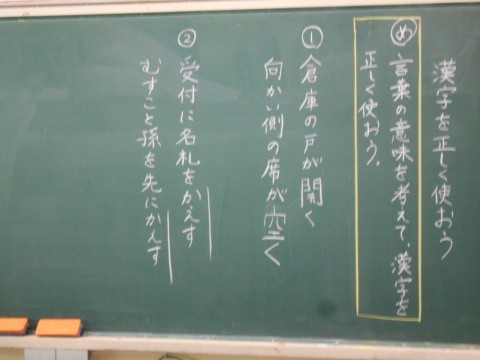 漢字を正しく使おう
め 言葉の意味を考えて、漢字を
正しく使おう。
① 倉庫の戸が開く
向かい側の席が空く
② 受付に名札をかえす
むすこと孫を先にかえす